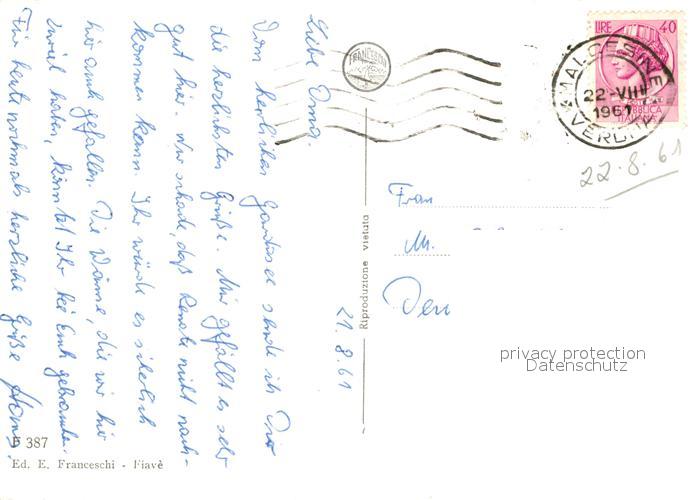 Liebe Oma.
Vom herrlichen Gardasee sende ich Dir
die herzlichsten Grüße. Mir gefällt es sehr
gut hier. Nur schade, daß Renate nicht nach-
kommen kann. Ihr würde es sicherlich
hier auch gefallen. Die Wärme, die wir hier
zuviel haben, könntet Ihr bei Euch gebrauchen.
Für heute nochmals herzliche Grüße
21.8.61
Riproduzione vietata
LIRE 40
MALCESINE
22-VIII
1961
VERONA
22.8.61
Frau
M.
Den
privacy protection
Datenschutz
387
Ed. E. Franceschi - Fiavè